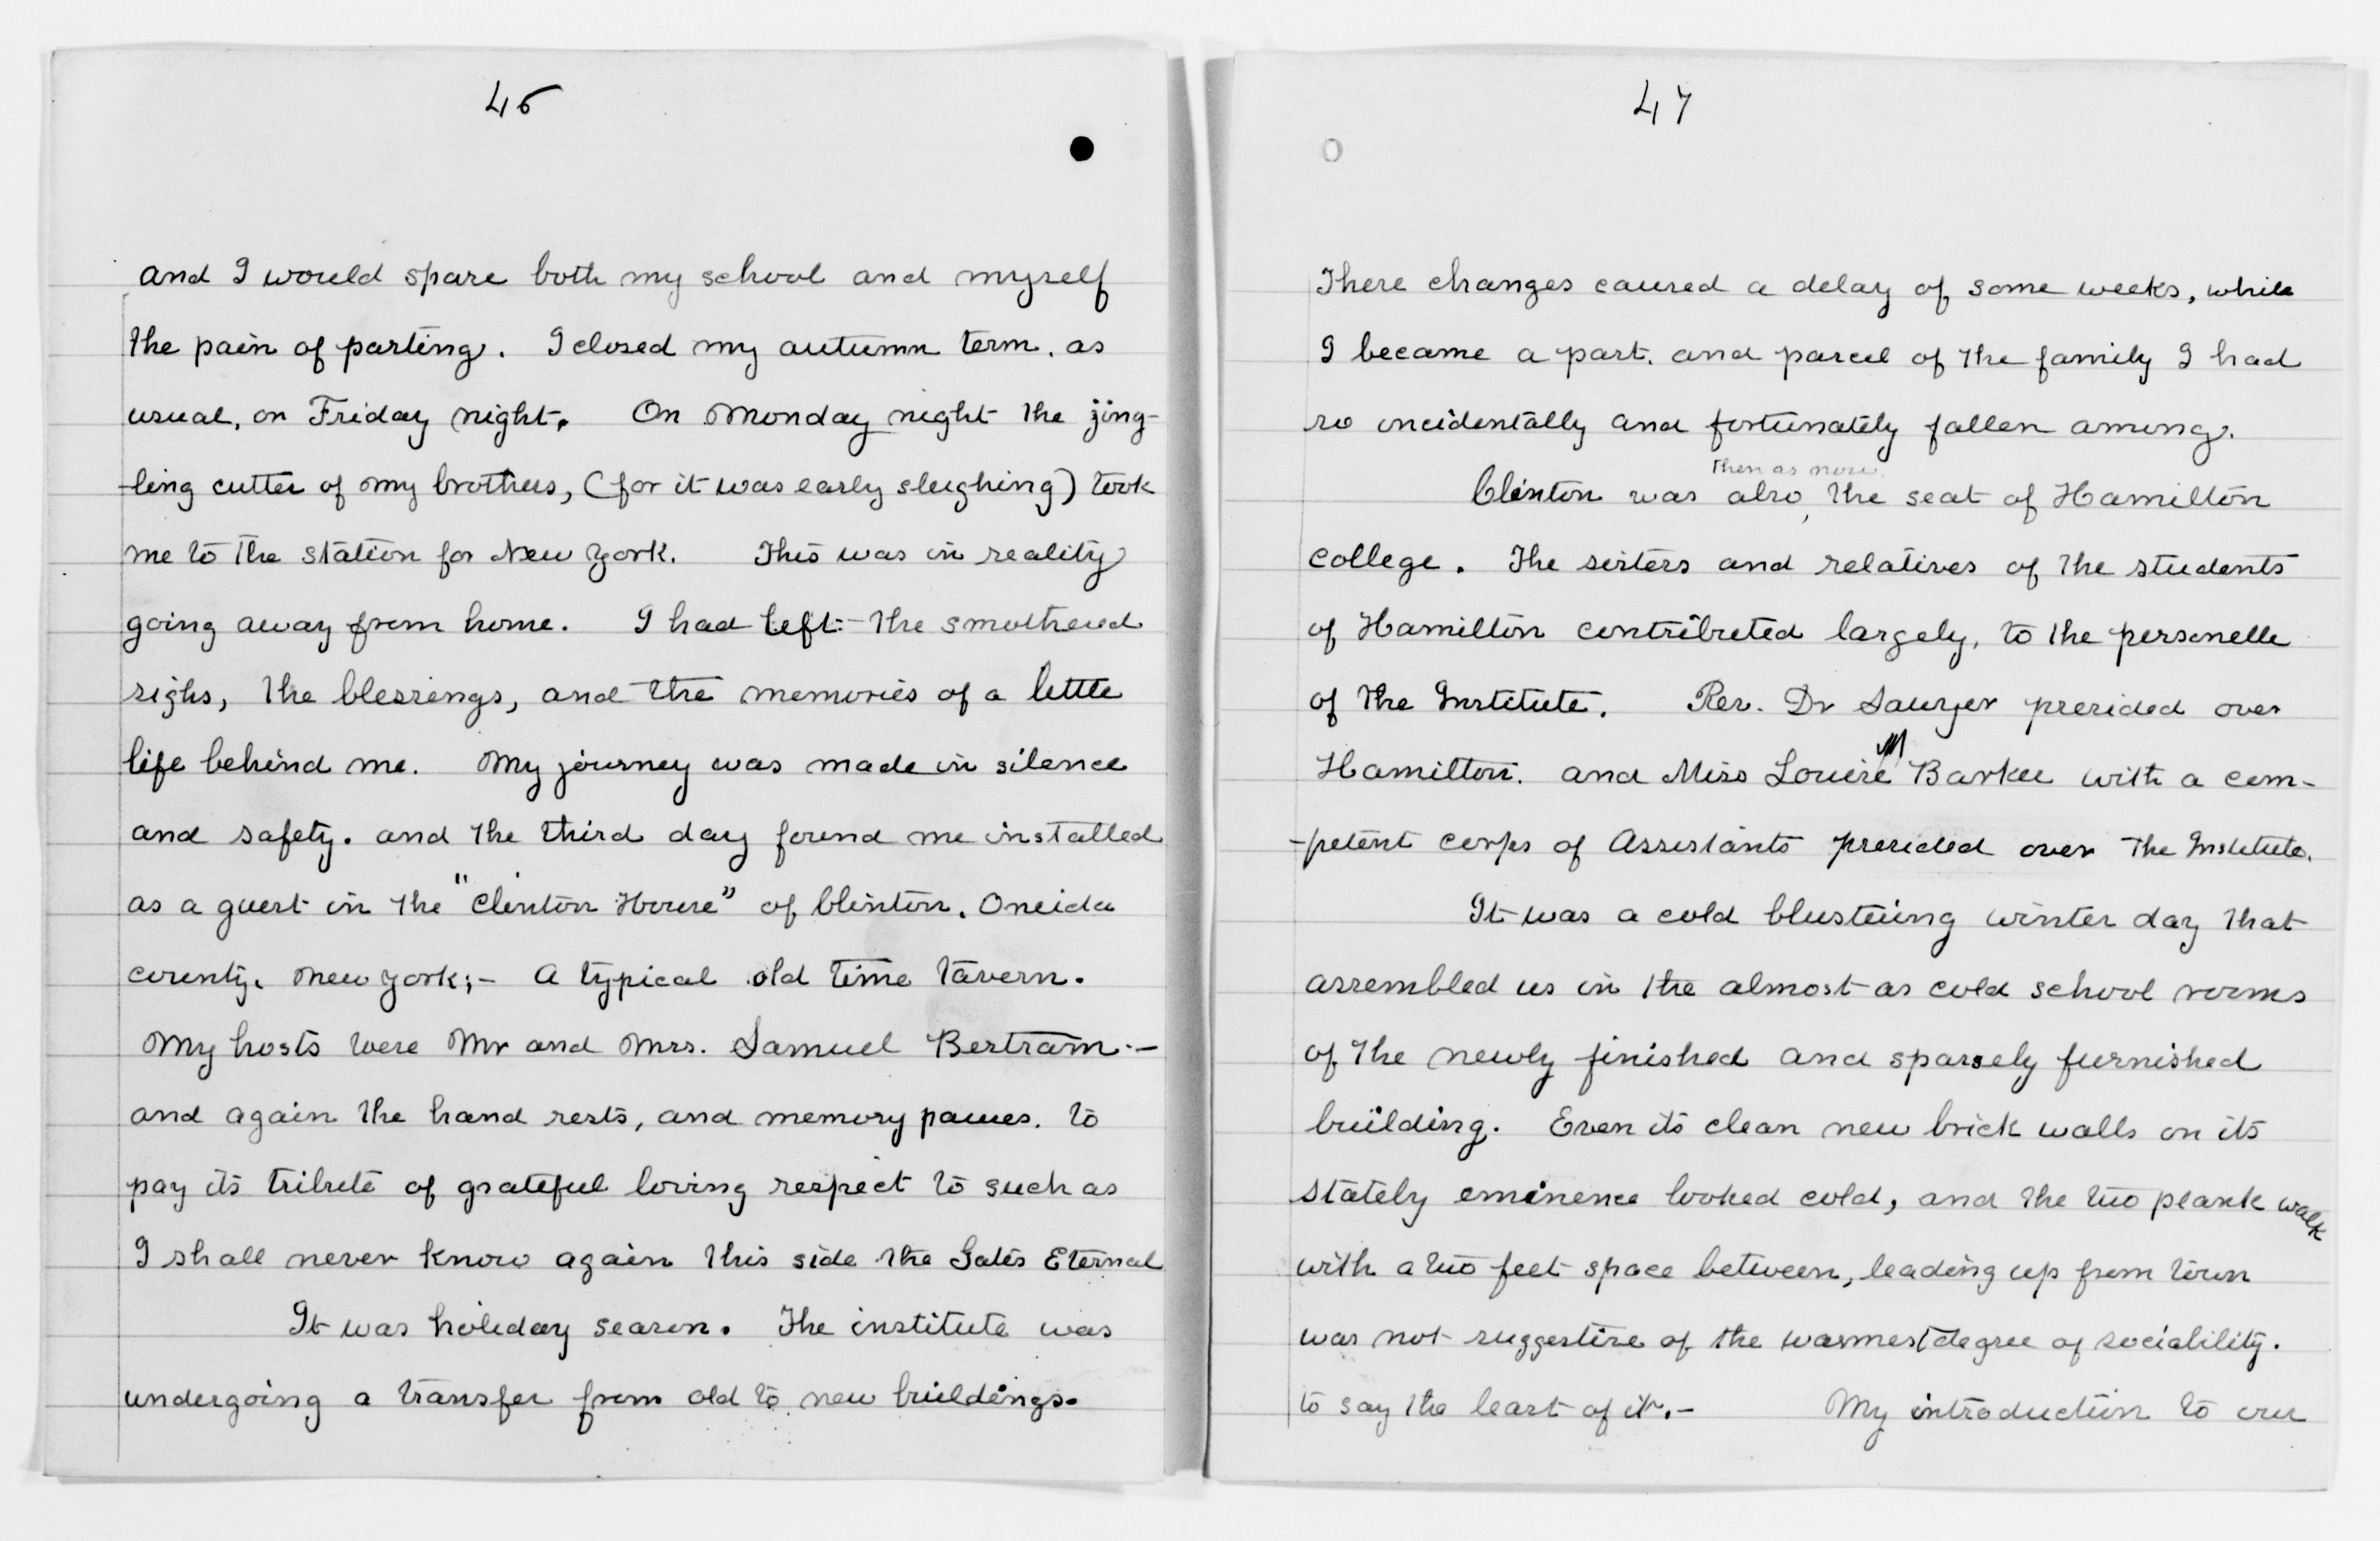 46
and I would spare both my school and myself
the pain of parting. I closed my autumn term, as
usual, on Friday night. On Monday night the jing-
-ling cutter of my brothers, (for it was early sleighing) took
me to the station for New York. This was in reality
going away from home. I had left the smothered
sighs, the blessings, and the memories of a little
life behind me. My journey was made in silence
and safety. and the third day found me installed
as a guest in the "Clinton House" of Clinton, Oneida
county, New York;- a typical old time tavern.
My hosts were Mr and Mrs. Samuel Bertram.-
and again the hand rests, and memory pauses, to
pay its tribute of grateful loving respect to such as
I shall never know again this side the Gates Eternal
It was holiday season. The institute was
undergoing a transfer from old to new buildings.
47
These changes caused a delay of some weeks, while
I became a part. and parcel of the family I had
so incidentally and fortunately fallen among.
then as now
Clinton was also, the seat of Hamilton
college. The sisters and relatives of the students
of Hamilton contributed largely, to the personelle
of the Institute. Rev. Dr Sawyer presided over
M
Hamilton. and Miss Louise Barker with a com-
-petent corps of Assistants presided over the Institute.
It was a cold blustering winter day that
assembled us in the almost as cold school rooms
of the newly finished and sparsely furnished
building. Even its clean new brick walls on its
stately eminence looked cold, and the two plank walk
with a two feet space between, leading up from town
was not suggestive of the warmest degree of sociability.
to say the least of it.- My introduction to our